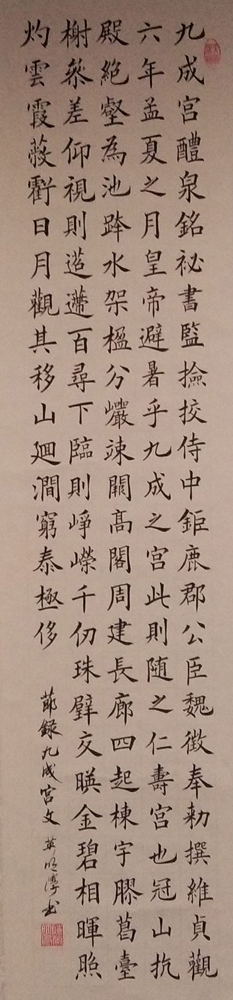 九成宮醴泉銘祕書監撿挍侍中鉅鹿郡公臣魏徵奉勅撰維貞觀
六年孟夏之月皇帝避暑乎九成之宮此則随之仁壽宮也冠山抗
殿絕壑為池跨水架楹分巗竦闕高閣周建長廊四起棟宇膠葛臺
榭叅差仰視則迢遰百尋下臨則崢嶸千仞珠壁交暎金碧相暉照
灼雲霞蔽虧日月觀其移山廻澗窮泰極侈
節錄九成宮文 書